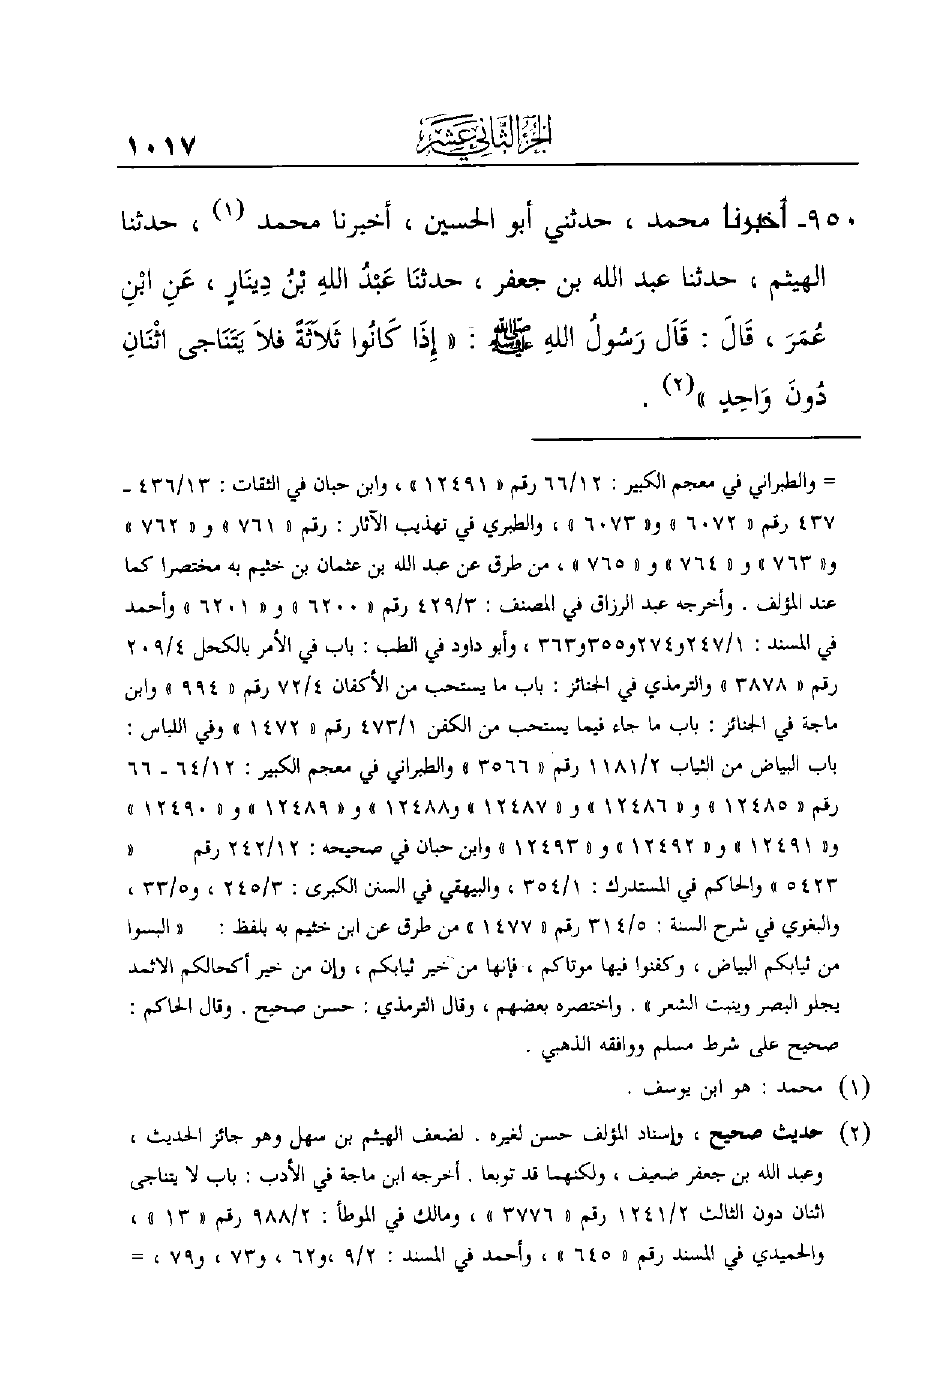 الجزء الثاني عشر
١٠١٧
٩٥٠ـ أخبرنا محمد ، حدثني أبو الحسين ، أخبرنا محمد (١) ، حدثنا
الهيثم ، حدثنا عبد الله بن جعفر ، حدثنَا عَبْدُ اللهِ بْنُ دِينَارٍ ، عَنِ ابْنِ
عُمَرَ ، قَالَ : قَالَ رَسُولُ اللهِ ﷺ : « إِذَا كَانُوا ثَلاَثَةً فلاَ يَتَنَاجى اثْنَانِ
دُونَ وَاحِدٍ »(٢) .
= والطبراني في معجم الكبير : ٦٦/١٢ رقم « ١٢٤٩١ » ، وابن حبان في الثقات : ٤٣٦/١٣ ـ
٤٣٧ رقم « ٦٠٧٢ » و« ٦٠٧٣ » ، والطبري في تهذيب الآثار : رقم « ٧٦١ » و « ٧٦٢ »
و« ٧٦٣ » و « ٧٦٤ » و « ٧٦٥ » ، من طرق عن عبد الله بن عثمان بن خثيم به مختصرا كما
عند المؤلف . وأخرجه عبد الرزاق في المصنف : ٤٢٩/٣ رقم « ٦٢٠٠ » و « ٦٢٠١ » وأحمد
في المسند : ٢٤٧/١و٢٧٤و٣٥٥و٣٦٣ ، وأبو داود في الطب : باب في الأمر بالكحل ٢٠٩/٤
رقم « ٣٨٧٨ » والترمذي في الجنائز : باب ما يستحب من الأكفان ٧٢/٤ رقم « ٩٩٤ » وابن
ماجة في الجنائز : باب ما جاء فيما يستحب من الكفن ٤٧٣/١ رقم « ١٤٧٢ » وفي اللباس :
باب البياض من الثياب ١١٨١/٢ رقم « ٣٥٦٦ » والطبراني في معجم الكبير : ٦٤/١٢ ـ ٦٦
رقم « ١٢٤٨٥ » و « ١٢٤٨٦ » و « ١٢٤٨٧ » و١٢٤٨٨ » و « ١٢٤٨٩ » و « ١٢٤٩٠ »
و« ١٢٤٩١ » و« ١٢٤٩٢ » و « ١٢٤٩٣ » وابن حبان في صحيحه : ٢٤٢/١٢ رقم «
٥٤٢٣ » والحاكم في المستدرك : ٣٥٤/١ ، والبيهقي في السنن الكبرى : ٢٤٥/٣ ، و٣٣/٥ ،
والبغوي في شرح السنة : ٣١٤/٥ رقم « ١٤٧٧ » من طرق عن ابن خثيم به بلفظ : « البسوا
من ثيابكم البياض ، وكفنوا فيها موتاكم ، فإنها من خير ثيابكم ، وإن من خير أكحالكم الاثمد
يجلو البصر وينبت الشعر » . واختصره بعضهم ، وقال الترمذي : حسن صحيح . وقال الحاكم :
صحيح على شرط مسلم ووافقه الذهبي .
(١) محمد : هو ابن يوسف .
(٢) حديث صحيح ، وإسناد المؤلف حسن لغيره . لضعف الهيثم بن سهل وهو جائز الحديث ،
وعبد الله بن جعفر ضعيف ، ولكنهما قد توبعا . أخرجه ابن ماجة في الأدب : باب لا يتناجى
اثنان دون الثالث ١٢٤١/٢ رقم « ٣٧٧٦ » ، ومالك في الموطأ : ٩٨٨/٢ رقم « ١٣ » ،
والحميدي في المسند رقم « ٦٤٥ » ، وأحمد في المسند : ٩/٢ ،و٦٢ ، و٧٣ ، و٧٩ ، =